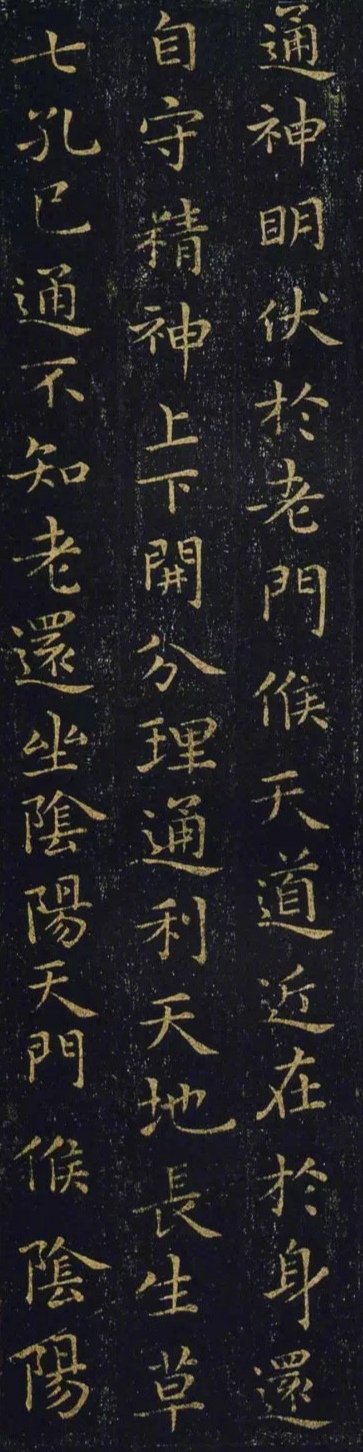 通神明伏於老門候天道近在於身還
自守精神上下開分理通利天地長生草
七孔已通不知老還坐陰陽天門候陰陽